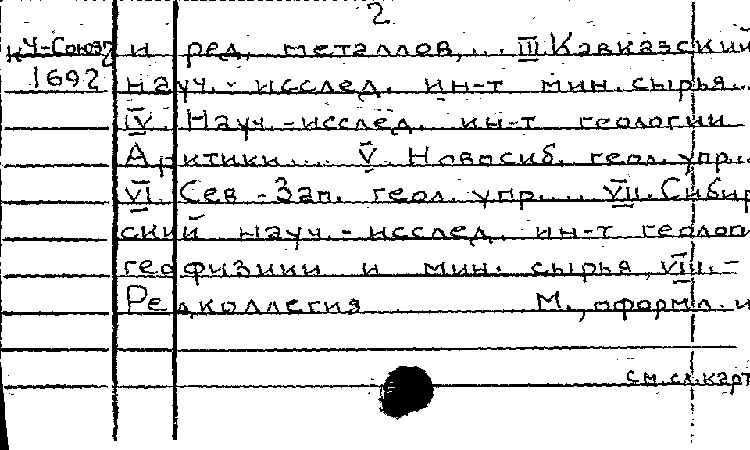 2
кЧ-Союз и ред. металлов,.. III. Кавказский
1692 науч.-исслед. ин-т мин. сырья...
IV. Науч.-исслед. ин-т геологии
Арктики... V. Новосиб. геол. упр...
VI. Сев-Зап. геол. упр... VII. Сибир
ский науч.-исслед. ин-т геологи
геофизики и мин. сырья, VIII.-
Редколлегия М., оформл. и
см. сл. карт